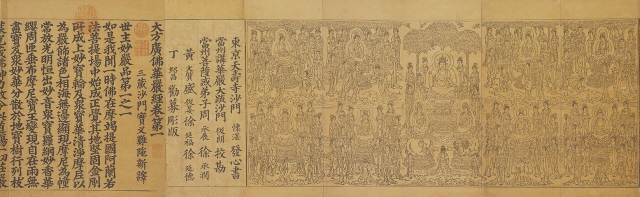 東京大壽寺沙門 發心書
當州講華嚴大疏沙門 校勘
當州菩薩戒弟子周 徐 承潤
黃 盛 徐 延福 徐 延德
丁 勸募彫版
大方廣佛華嚴經卷第一
三藏沙門實叉難陁新譯
世主妙嚴品第一之一
如是我聞一時佛在摩竭提國阿蘭若
法菩提場中始成正覺其地堅固金剛
所成上妙寶輪及衆寶華清淨摩尼以
為嚴飾諸色相海無邊顯現摩尼為幢
常放光明恒出妙音衆寶羅網妙香華
纓周匝垂布摩尼寶王變現自在雨無
盡寶及衆妙華分散於地寶樹行列枝
葉光茂佛神力故令此道場一切莊嚴